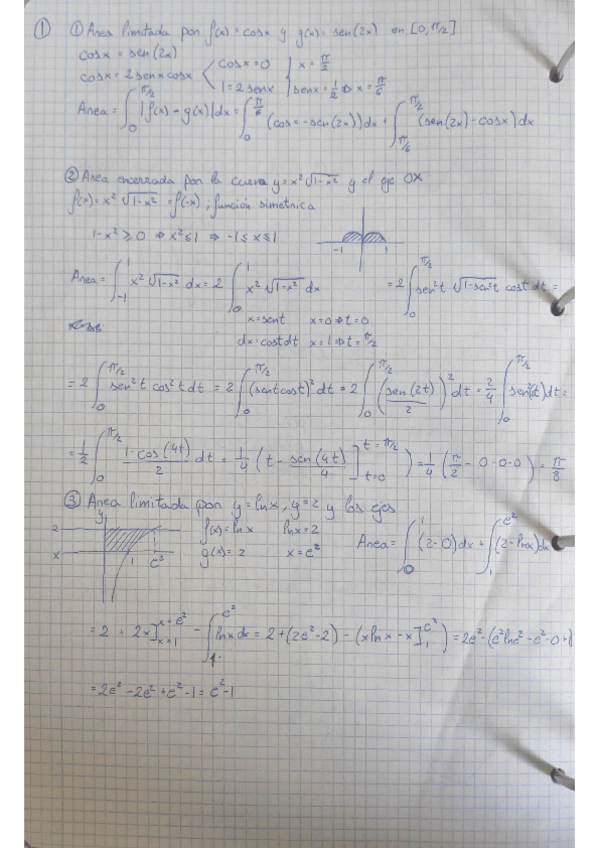 ① ① Area limitada por f(x) = cosx y g(x) = sen(2x) en [0, π/2]
cosx = sen(2x)
cosx = 2senxcosx < cosx = 0 } x = π/2
1 = 2senx } senx = 1/2 ⇒ x = π/6
Area = ∫₀^{π/2} |f(x) - g(x)|dx = ∫₀^{π/6} (cosx - sen(2x))dx + ∫_{π/6}^{π/2} (sen(2x) - cosx)dx
② Area encerrada por la curva y = x²√(1-x²) y el eje OX
f(x) = x²√(1-x²) = f(-x) ; función simetrica
1-x² ≥ 0 ⇒ x² ≤ 1 ⇒ -1 ≤ x ≤ 1
-1 1
Area = ∫₋₁^1 x²√(1-x²) dx = 2 ∫₀^1 x²√(1-x²) dx = 2 ∫₀^{π/2} sen²t √(1-sen²t) cost dt =
x = sent x = 0 ⇒ t = 0
dx = costdt x = 1 ⇒ t = π/2
= 2 ∫₀^{π/2} sen²t cos²t dt = 2 ∫₀^{π/2} (sentcost)² dt = 2 ∫₀^{π/2} (sen(2t)/2)² dt = 2/4 ∫₀^{π/2} sen²(2t)dt =
= 1/2 ∫₀^{π/2} (1-cos(4t))/2 dt = 1/4 (t - sen(4t)/4 ]_{t=0}^{t=π/2} ) = 1/4 (π/2 - 0-0-0) = π/8
③ Area limitada por y = lnx, y = 2 y los ejes
y
2
x 1 e²
f(x) = lnx lnx = 2
g(x) = 2 x = e²
Area = ∫₀^1 (2-0)dx + ∫₁^{e²} (2-lnx)dx
= 2 + 2x]_{x=1}^{x=e²} - ∫₁^{e²} lnxdx = 2 + (2e²-2) - (xlnx - x]₁^{e²} ) = 2e² - (e²lne² - e² - 0 + 1)
= 2e² - 2e² + e² - 1 = e² - 1